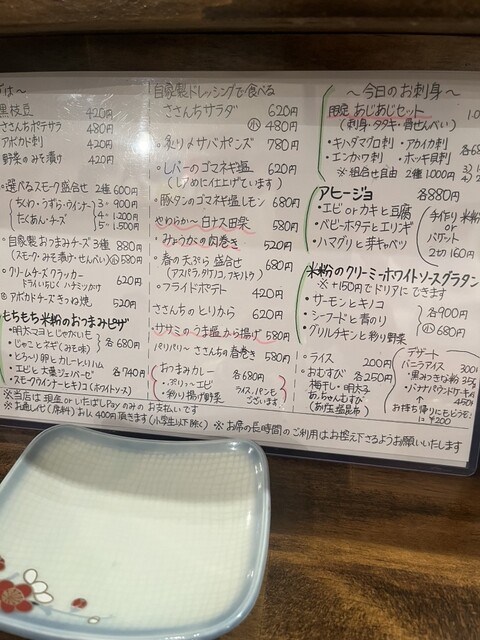 黒枝豆 420円
ささんちポテサラ 480円
アボカド刺 420円
野菜のみそ漬け 420円
・選べるスモーク盛合せ 2種 600円
ちくわ・うずら・ウインナー 3〃 900円
たくあん・チーズ 4〃 1.200円
5〃 1.500円
・自家製おつまみチーズ 3種 880円
(スモーク・みそ漬け・せんべい) ㋛580円
・クリームチーズクラッカー
ドライいちじく ハチミツかけ 620円
アボカドチーズきつね焼 520円
もちもち米粉のおつまみピザ
・明太マヨとじゃがいも
・じゃことネギ(みそ味) 各680円
・とろ〜り卵とカレーとりハム
・エビと大葉ジェノベーゼ 各740円
・スモークウインナーとキノコ(ホワイトソース)
自家製ドレッシングで食べる
ささんちサラダ 620円
㋛480円
・炙りメサバポンズ 780円
・レバーのゴマネギ塩 620円
(レアめに仕上げています)
・豚タンのゴマネギ塩レモン 680円
やわらか〜 白ナス田楽 580円
・みょうがの肉巻き 520円
・春の天ぷら盛合せ 680円
(アスパラ,タケノコ,フキノトウ)
・フライドポテト 420円
ささんちのとりから 620円
・ササミのうま塩から揚げ 580円
パリパリ〜ささんちの春巻き 580円
おつまみカレー 各680円
・ぷりっ〜エビ
・彩り揚げ野菜
ライス,パンも
ございます
〜今日のお刺身〜
限定 あじあじセット
(刺身・タタキ・骨せんべい)
・キハダマグロ刺 ・アカイカ刺
・エンガワ刺 ・ホッキ貝刺
※組合せ自由 2種 1.000円
アヒージョ 各880円
・エビorカキと豆腐
・ベビーホタテとエリンギ
・ハマグリと芽キャベツ
手作り米粉
or
バゲット
2切 160円
米粉のクリーミーホワイトソースグラタン
※+150円でドリアにできます
・サーモンとキノコ
・シーフードと青のり 各900円
・グリルチキンと彩り野菜 ㋛680円
・ライス 200円
・おむすび 各250円
梅干し・明太子
あ,ちゃんむすび
(あげ玉塩昆布)
デザート
バニラアイス 300
・黒みつきな粉 35
・バナナパウンドケーキ
450
お持ち帰りにもどうぞ
¥200
※当店は 現金 or いたばしPay のみのお支払いです
※お通し代(席料)お1人 400円頂きます(小学生以下除く) ※お席の長時間のご利用はお控え下さるようお願いいたします